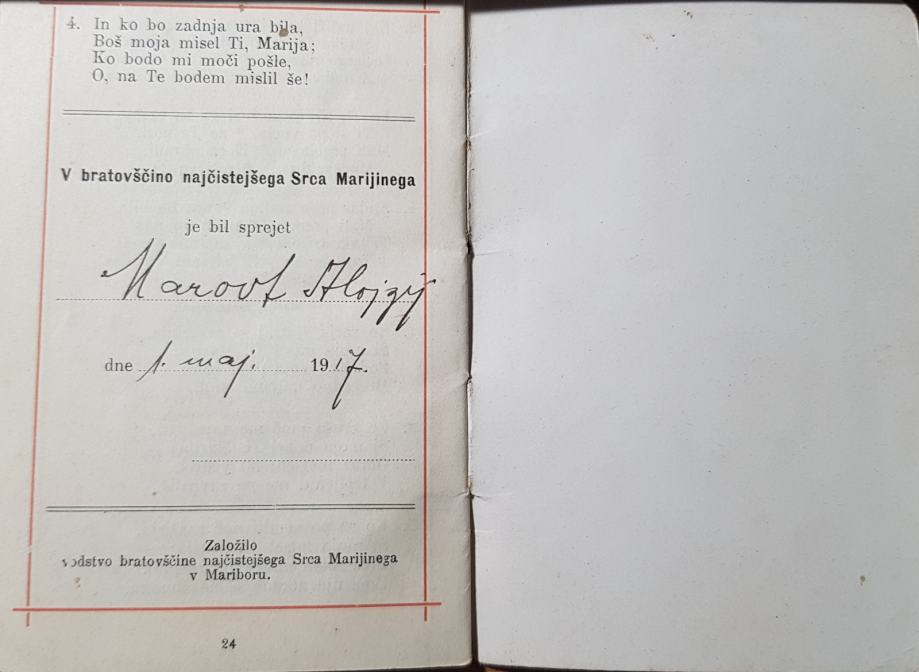 4. In ko bo zadnja ura bila,
Boš moja misel Ti, Marija;
Ko bodo mi moči pošle,
O, na Te bodem mislil še!
V bratovščino najčistejšega Srca Marijinega
je bil sprejet
Marovt Alojzij
dne 1. maj. 1917.
Založilo
vodstvo bratovščine najčistejšega Srca Marijinega
v Mariboru.
24